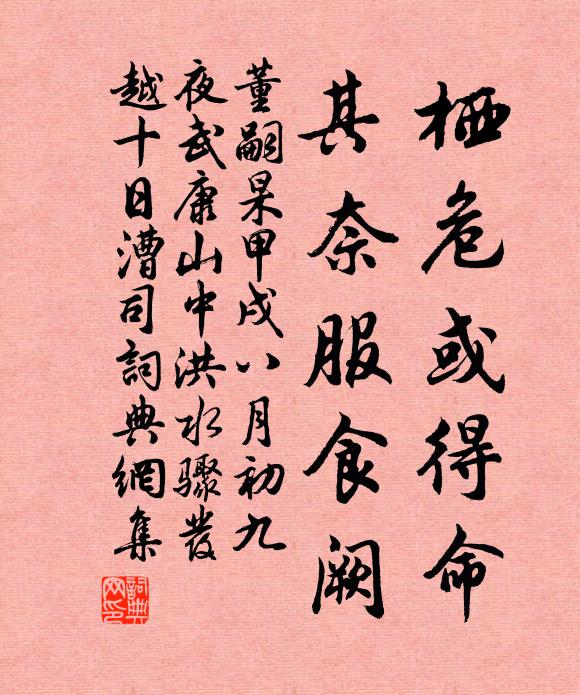 栖危或得命
其奈服食阙
董嗣杲甲戌八月初九
夜武康山中洪水骤发
越十日漕司詞典網集
詞典
网印